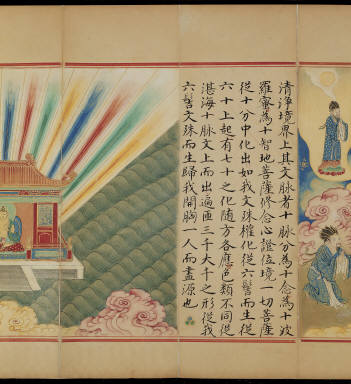 清淨境界上其文脉者十脉分為十念為十波
羅蜜為十智地菩薩修念心證位境一切菩薩
從十分中化出如我文殊權化從六髻而生從
六十上起有七十之化隨方各應色類不同從
湛海十脉文上而出遍匝三千大千之形從我
六髻文殊而生歸我開胸一人而盡源也